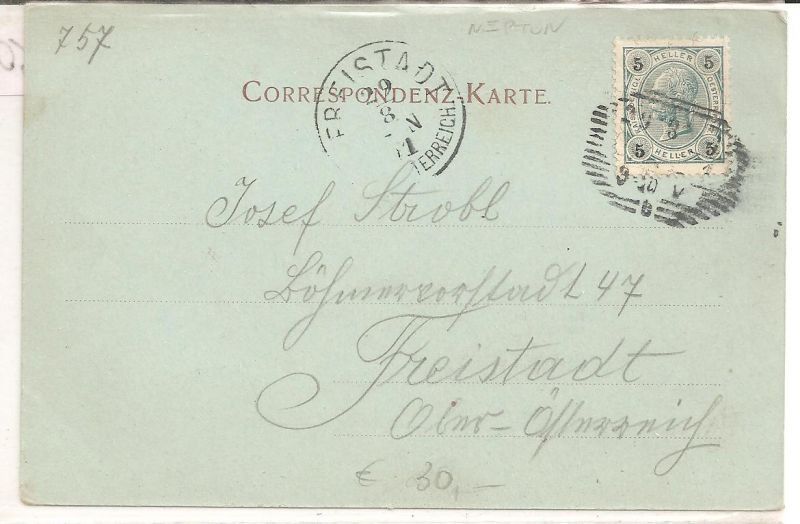 757
NEPTUN
FREISTADT
29
8
CORRESPONDENZ-KARTE.
5 HELLER 5
5 HELLER 5
Josef Strobl
Böhmervorstadt 47
Freistadt
Ober-Österreich
€ 30,—